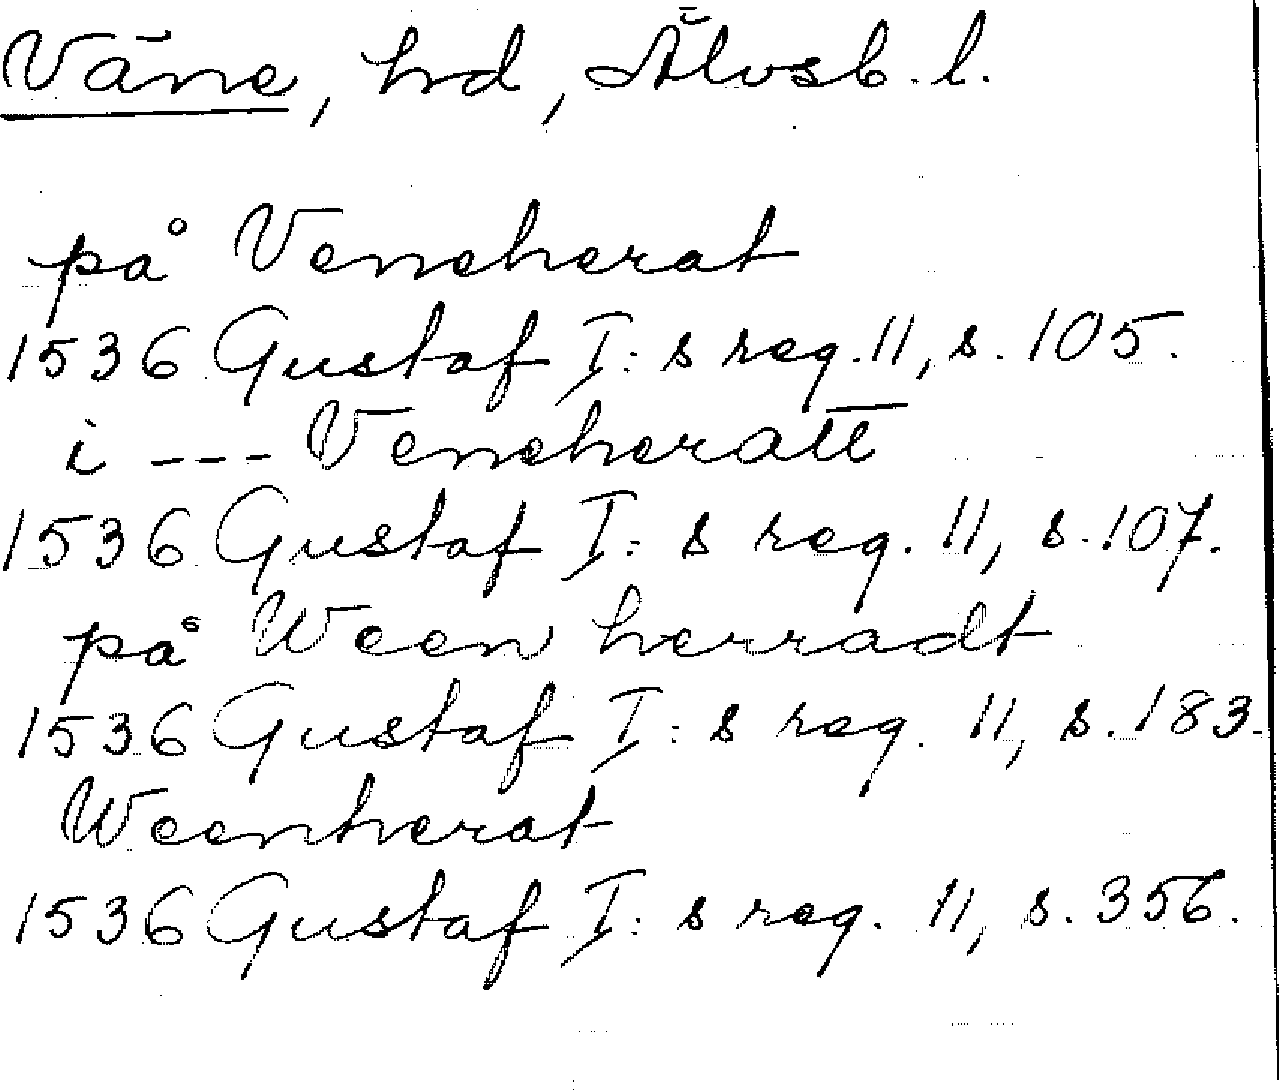 Väne, hd, Älvsb. l.
på Veneherat
1536 Gustaf I: s reg. 11, s. 105.
i --- Veneheratt
1536 Gustaf I: s reg. 11, s. 107.
på Ween herradt
1536 Gustaf I: s reg. 11, s. 183.
Weenherat
1536 Gustaf I: s reg. 11, s. 356.